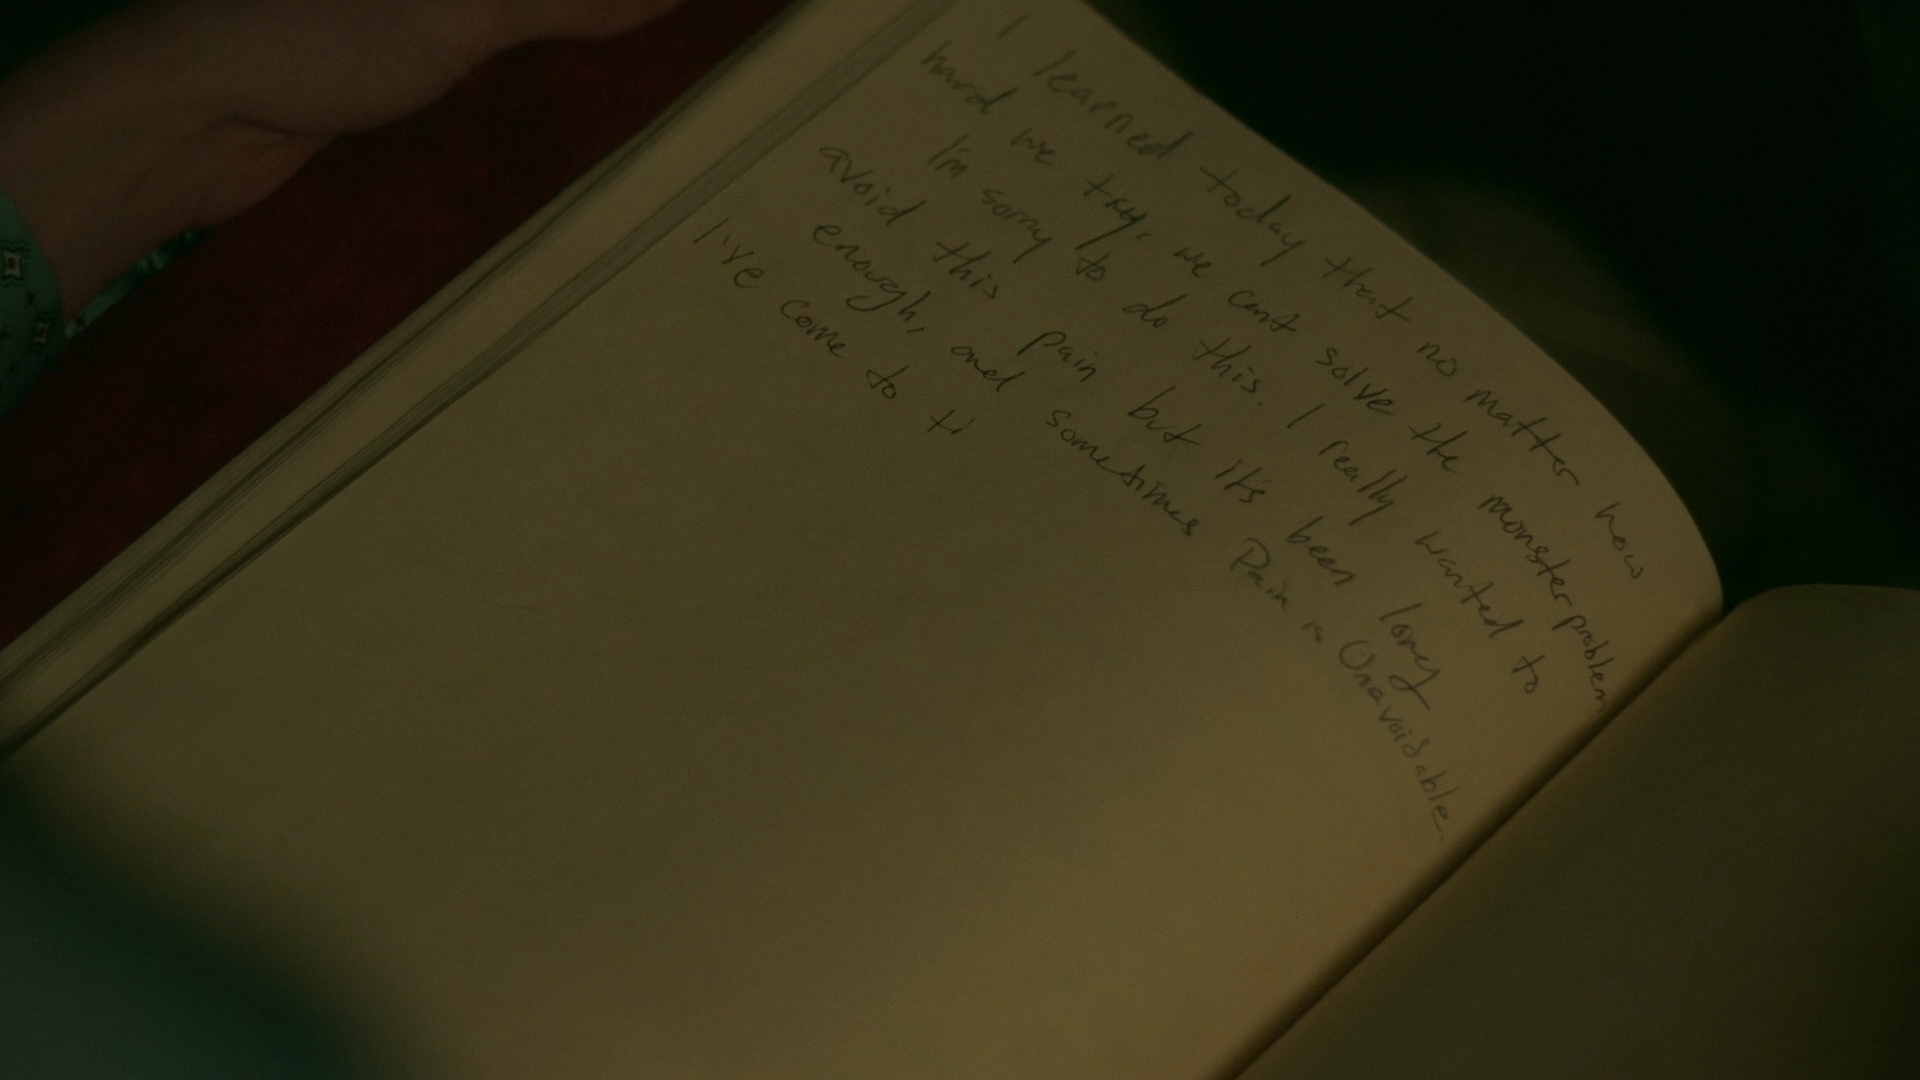 I learned today that no matter how
hard we try, we cant solve the monster problem
I'm sorry to do this. I really wanted to
avoid this pain but it's been long
enough, and sometimes Pain is Unavoidable.
I've come to ti